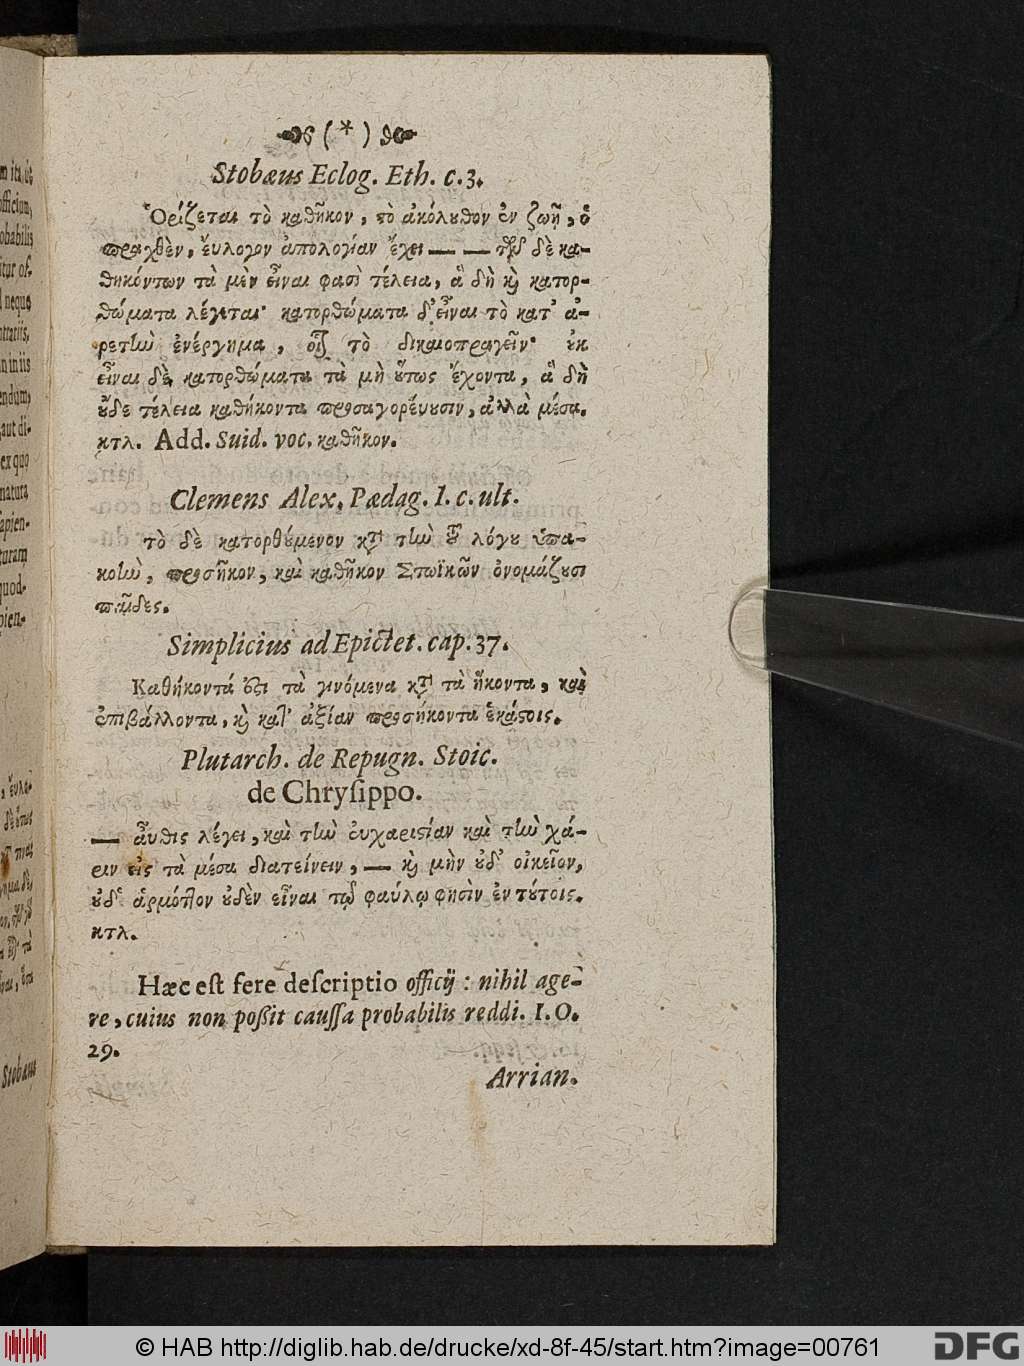 (*)
Stobæus Eclog. Eth. c. 3.
Ὁρίζεται τὸ καθῆκον, τὸ ἀκόλουθον ἐν ζωῇ, ὁ
πραχθὲν, εὔλογον ἀπολογίαν ἔχει — — τῶν δὲ κα-
θηκόντων τὰ μὲν εἶναι φασὶ τέλεια, ἃ δὴ καὶ κατορ-
θώματα λέγεται· κατορθώματα δ' εἶναι τὸ κατ' ἀ-
ρετὴν ἐνέργημα, οἷον τὸ δικαιοπραγεῖν· οὐκ
εἶναι δὲ κατορθώματα τὰ μὴ οὕτως ἔχοντα, ἃ δὴ
οὔδε τέλεια καθήκοντα προσαγορέυουσιν, ἀλλὰ μέσα.
κτλ. Add. Suid. voc. καθῆκον.
Clemens Alex. Pædag. l. c. ult.
τὸ δὲ κατορθούμενον κατὰ τὴν τοῦ λόγου ὑπα-
κοὴν, προσῆκον, καὶ καθῆκον Στωϊκῶν ὀνομάζουσι
παῖδες.
Simplicius ad Epictet. cap. 37.
Καθήκοντά ἐστι τὰ γινόμενα κατὰ τὰ ἥκοντα, καὶ
ἐπιβάλλοντα, καὶ κατ' ἀξίαν προσήκοντα ἑκάστοις.
Plutarch. de Repugn. Stoic.
de Chrysippo.
— αὖθις λέγει, καὶ τὴν ἐυχαριστίαν καὶ τὴν χά-
ριν εἰς τὰ μέσα διατείνειν, — καὶ μὴν οὐδ' οἰκεῖον,
οὐδ' ἁρμόττον οὐδὲν εἶναι τῷ φαύλῳ φησὶν ἐν τούτοις.
κτλ.
Hæc est fere descriptio officij: nihil age-
re, cuius non poßit caussa probabilis reddi. I. O.
29.
Arrian.
Stobæus
© HAB http://diglib.hab.de/drucke/xd-8f-45/start.htm?image=00761
DFG